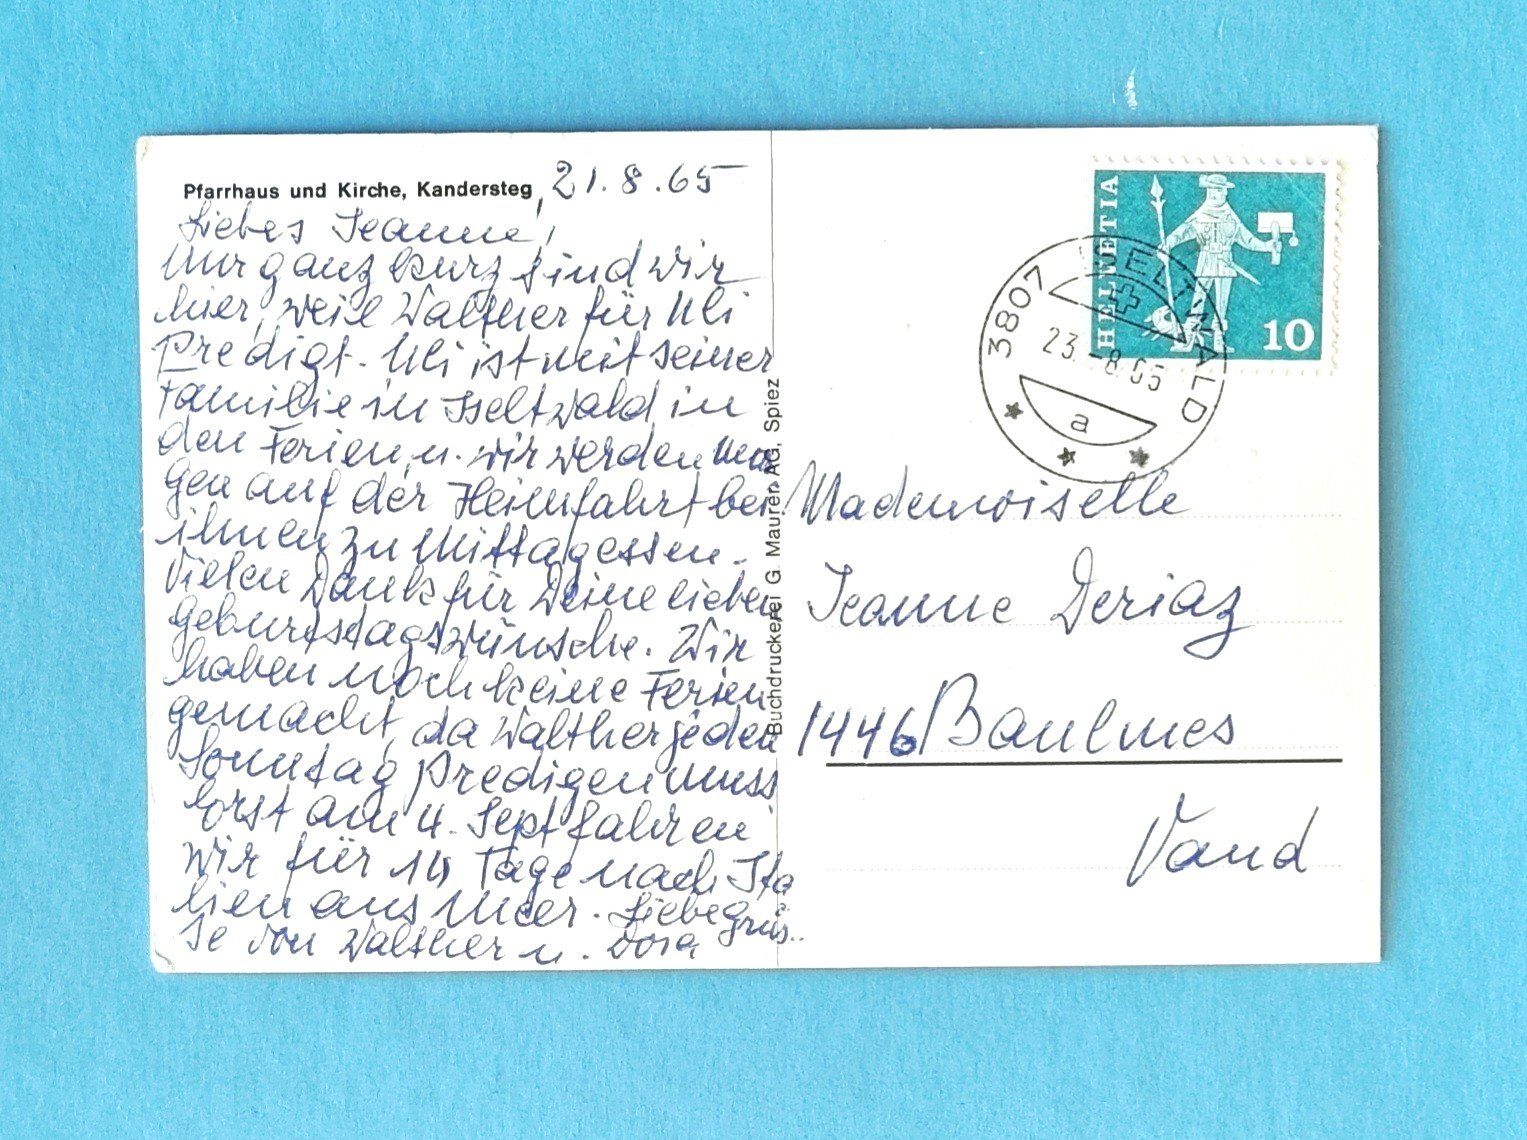 Pfarrhaus und Kirche, Kandersteg, 21.8.65
Liebes Jeanne,
Nur ganz kurz sind wir
hier, weil Walther für Uli
Predigt. Uli ist mit seiner
Familie in Iseltwald in
den Ferien, u. wir werden Mor
gen auf der Heimfahrt bei
ihnen zu Mittagessen.
Vielen Dank für Deine lieben
Geburtstagswünsche. Wir
haben noch keine Ferien
gemacht, da Walther jeden
Sonntag Predigen muss
Erst am 4. Sept fahren
wir für 14 Tage nach Ita
lien ans Meer. Liebe Grüs..
se von Walther u. Dora
Buchdruckerei G. Maurer AG, Spiez
HELVETIA
10
3807 ISELTWALD
23.-8.65
a
Mademoiselle
Jeanne Deriaz
1446 Baulmes
Vaud